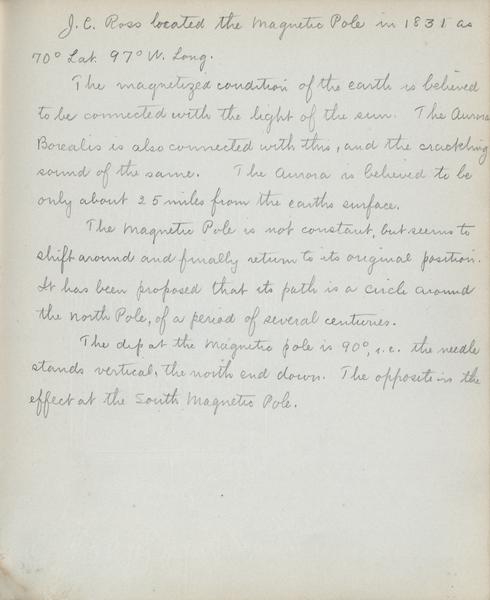 J. C. Ross located the Magnetic Pole in 1831 as
70° Lat. 97° W. Long.
The magnetized condition of the earth is believed
to be connected with the light of the sun. The Aurora
Borealis is also connected with this, and the crackling
sound of the same. The Aurora is believed to be
only about 25 miles from the earths surface.
The Magnetic Pole is not constant, but seems to
shift around and finally return to its original position.
It has been proposed that its path is a circle around
the North Pole, of a period of several centuries.
The dip at the Magnetic pole is 90°, i.e. the needle
stands vertical, the north end down. The opposite is the
effect at the South Magnetic Pole.